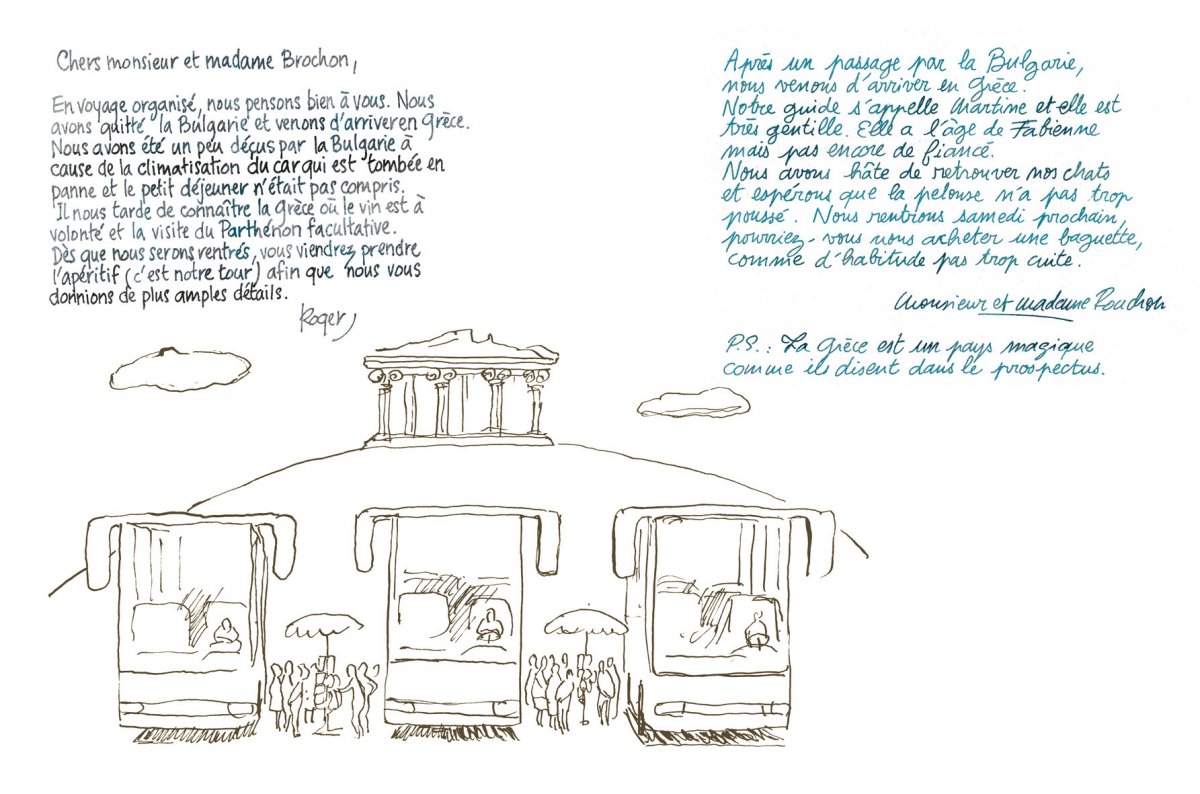 Chers monsieur et madame Brochon,
En voyage organisé, nous pensons bien à vous. Nous
avons quitté la Bulgarie et venons d'arriver en Grèce.
Nous avons été un peu déçus par la Bulgarie à
cause de la climatisation du car qui est tombée en
panne et le petit déjeuner n'était pas compris.
Il nous tarde de connaître la Grèce où le vin est à
volonté et la visite du Parthénon facultative.
Dès que nous serons rentrés, vous viendrez prendre
l'apéritif (c'est notre tour) afin que nous vous
donnions de plus amples détails.
Roger
Après un passage par la Bulgarie,
nous venons d'arriver en Grèce.
Notre guide s'appelle Martine et elle est
très gentille. Elle a l'âge de Fabienne
mais pas encore de fiancé.
Nous avons hâte de retrouver nos chats
et espérons que la pelouse n'a pas trop
poussé. Nous rentrions samedi prochain,
pourriez-vous nous acheter une baguette,
comme d'habitude pas trop cuite.
Monsieur et madame Rouchon
P.S.: La Grèce est un pays magique
comme ils disent dans le prospectus.